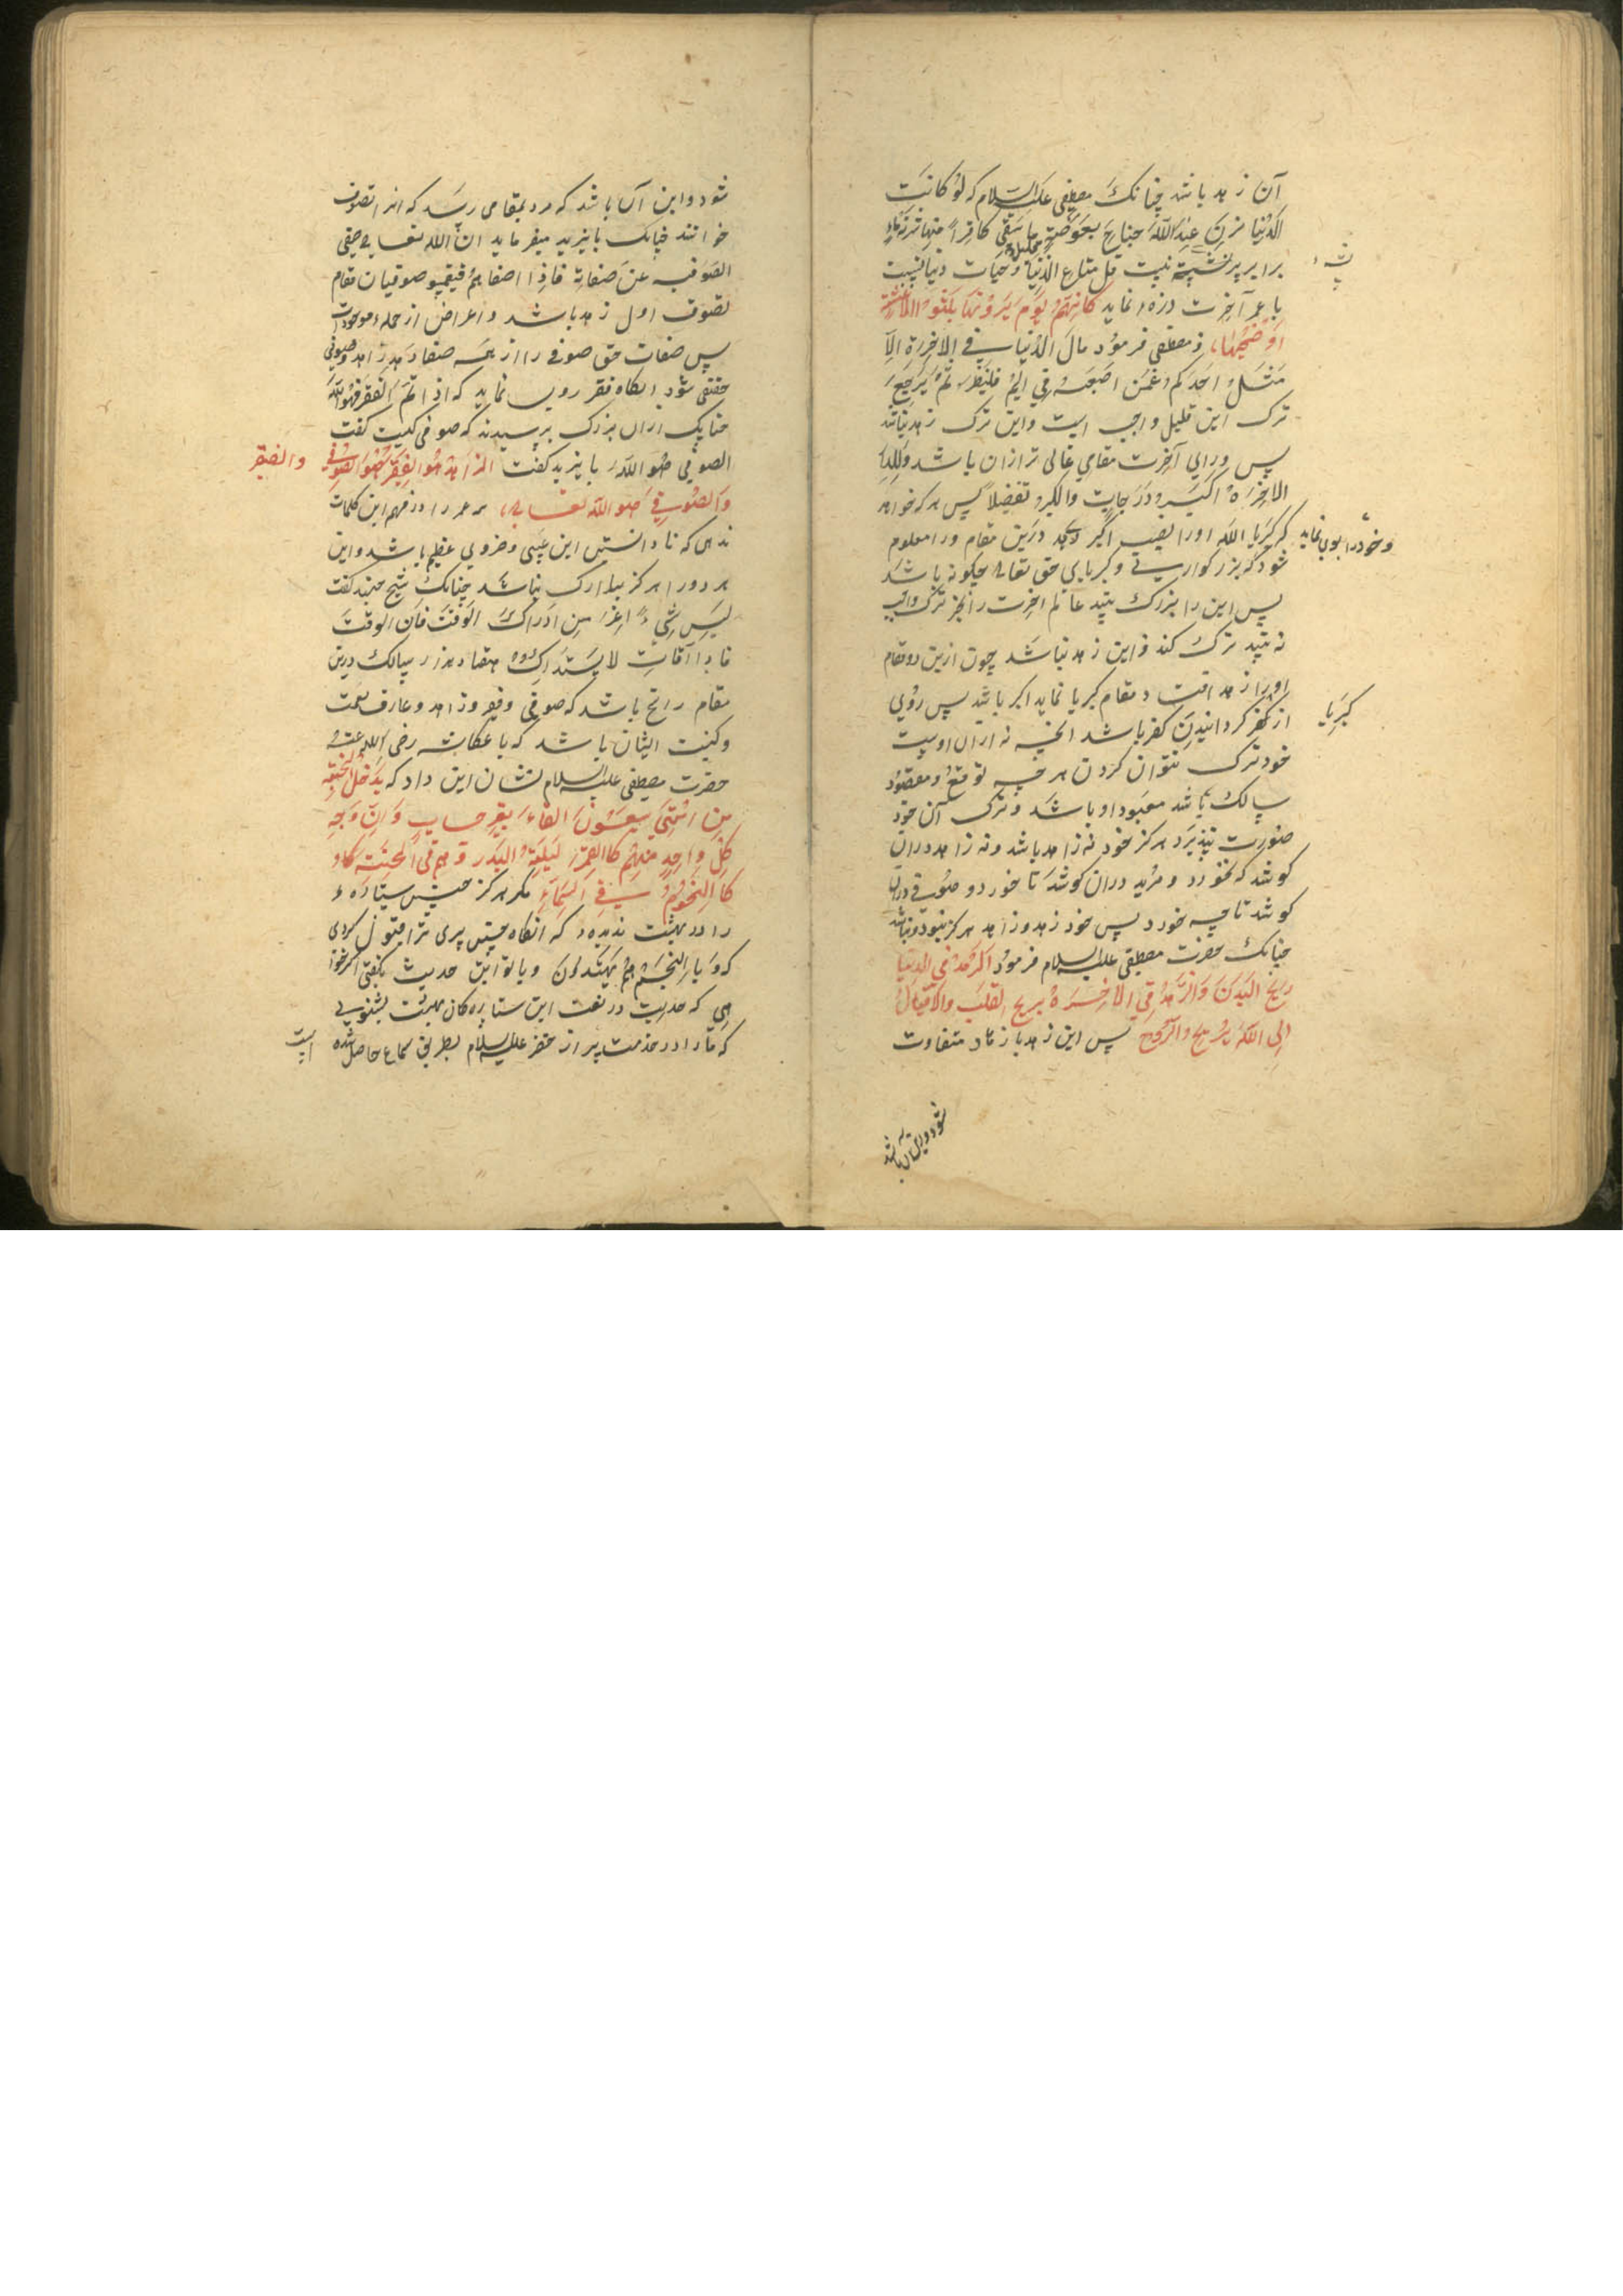 آن زهد باشد چنانکَ مصطفی علیه السلام که لَو کانَت
الدُنیا تزِنُ عِندَ اللّٰه جناحَ بعوضةٍ ما سَقی کافِراً منها شربَة ماءٍ
برابر پر پشّه نیست قل متاع الدُنیا قلیل و حیات دنیا نسبت
پشّه
با عمر آخرت ذرّه نماید کانهُم یَومَ یَرَونها لم یلبثوا الا عشیّة
اَو ضُحیٰها، و مصطفی فرمود مالَ الدُنیا فی الاخِرَة الّا
مَثَلُ احَدکم غمَسَ اصبَعَهُ فی الیمّ فلینظر بمَ یَرجِعُ
ترک این قلیل واجب است و این ترک زهد نباشد
پس ورای آخرت مقامی عالی تر ازان باشد وَلَلآ
الاخِرَةُ اکبَرُ دَرَجاتٍ و اکبر تفضیلاً پس هر که خواهد
که کبریا اللّٰه او را نصیب اکبر دهد درین مقام و را معلوم
و خود را بوی نماید
شود که بزرکواری و کبریای حق تعالی چکونه باشد
پس این را بزرک بیند عالم اخرت را بجز ترک واجب
نه بیند ترک کند و این زهد نباشد چون ازین دو مقام
او را زهد افتد و مقام کبریا نماید اکبر باشد پس روی
کبریا
از کفر کردانیدن کفر باشد انچه نه ازان اوست
خود ترک نتوان کردن هر چه توقع و مقصُود
سالک باشد معبود او باشد و ترک آن خود
صورت نپذیرد هرکز خود نه زاهد باشد و نه زاهد دران
کوشد که نخورد و مرید دران کوشد تا خورد و صوفی دران
کوشد تا چه خورد پس خود زهد و زاهد هرکز نبود و نباشد
چنانک حضرت مصطفی علیه السلام فرمود الزهد فی الدنیا
یریحُ البَدَنَ و الزهد فی الاخِرَةِ یریح القلبَ و الاقبال
الی اللّٰه یُریح الرّوح پس این زهد با زهاد متفاوت
شود و این آن باشد
شود و این آن باشد که مرد بمقامی رسد که انرا تصوف
خوانند چنانک بایزید میفرماید انّ اللّٰه تعالی صفی
الصوفیه عن صفاته فاذا اصفاهم فیقمیو صوفیان مقام
تصوف اول زهد باشد و اعراض از جمله موجودات
پس صفات حق صوفی را از همه صفا دهد زاهد و صوفی
حقیقی شود انکاه فقر روی نماید که اذا تمّ الفقر فهو اللّٰه
چنانک ازان بزرک پرسیدند که صوفی کیست کفت
الصوفی هو اللّٰه بایزید کفت الزاهد هُو الفقیر و الفقیر هو الصُوفی
و الصُوفی هو اللّٰه تعالی، هر عمر را در فهم این کلمات
ندهی که نادانستن این غبنی و خردی عظیم باشد و این
هر دو را هرکز تدارک نباشد چنانک شیخ جنید کفت
لیسَ شیءٌ اعَزّ مِن ادراک الوقت فان الوقت
فاذا افاتَ لا یستدرک هفتاد هزار سالک درین
مقام رایح باشد که صوفی و فقیر و زاهد و عارف نعمت
و کنیت ایشان باشد که با عکاشه رضی اللّٰه عنهُ
حضرت مصطفی علیه السلام نشان این داد که یَدخل الجنة
مِن اُمّتی سبعُونَ الفاً بغیر حسابٍ و ان وَجه
کلّ واحِدٍ منهُم کالقمر لیلةُ البدر وهم فی الجنة کا
کالنجوُمُ فی السماء مکر هرکز چنین ستاره
را در بهشت ندیده‌ء که انکاه چنین پری ترا قبول کردی
که و بالنجمِ هُم یَهتدونَ و با تو این حدیث بکفتی اکر خوا
هی که حدیث در نعت این ستاره‌کان بهشت بشنوی
که ما را در خدمت پیر از خضر علیه السلام بطریق سماع حاصل شده
است